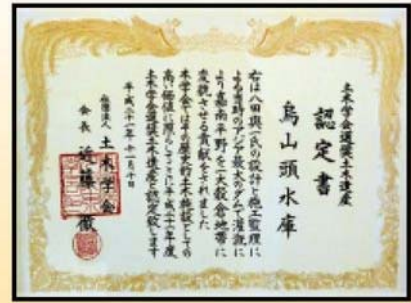 土木学会選奨土木遺産
認定書
烏山頭水庫
右は八田與一氏の設計と施工監理に
よる当時のアジア最大のダムで灌漑に
より嘉南平野を一大穀倉地帯に
変貌させる貢献をされました
本学会はその歴史的土木施設としての
高い価値に照らしここに平成二十一年度
土木学会選奨土木遺産と認定致します
平成二十一年十一月十日
社団法人 土木学会
会長 近藤徹